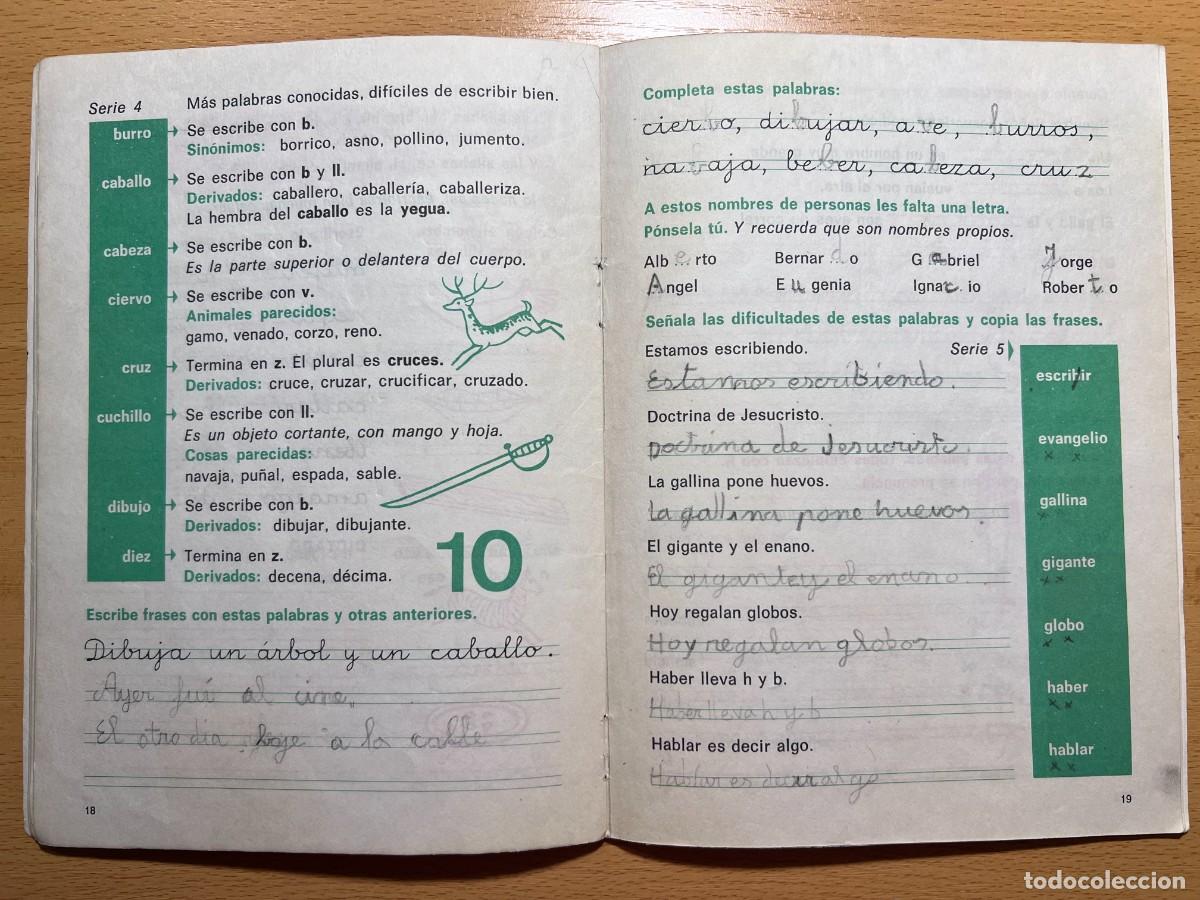 Serie 4
Más palabras conocidas, difíciles de escribir bien.
burro
Se escribe con b.
Sinónimos: borrico, asno, pollino, jumento.
caballo
Se escribe con b y ll.
Derivados: caballero, caballería, caballeriza.
La hembra del caballo es la yegua.
cabeza
Se escribe con b.
Es la parte superior o delantera del cuerpo.
ciervo
Se escribe con v.
Animales parecidos:
gamo, venado, corzo, reno.
cruz
Termina en z. El plural es cruces.
Derivados: cruce, cruzar, crucificar, cruzado.
cuchillo
Se escribe con ll.
Es un objeto cortante, con mango y hoja.
Cosas parecidas:
navaja, puñal, espada, sable.
dibujo
Se escribe con b.
Derivados: dibujar, dibujante.
diez
Termina en z.
Derivados: decena, décima.
10
Escribe frases con estas palabras y otras anteriores.
Dibuja un árbol y un caballo.
Ayer fuí al cine.
El otro dia a la calle
18
Completa estas palabras:
ciervo, dibujar, ave, burros,
navaja, beber, cabeza, cruz
A estos nombres de personas les falta una letra.
Pónsela tú. Y recuerda que son nombres propios.
Alberto Bernardo Gabriel Jorge
Angel Eugenia Ignacio Roberto
Señala las dificultades de estas palabras y copia las frases.
Estamos escribiendo.
Serie 5
Estamos escribiendo.
escribir
Doctrina de Jesucristo.
Doctrina de Jesucrist.
evangelio
La gallina pone huevos.
La gallina pone huevos.
gallina
El gigante y el enano.
El gigante y el enano.
gigante
Hoy regalan globos.
Hoy regalan globos.
globo
Haber lleva h y b.
Haber lleva h y b
haber
Hablar es decir algo.
Hablar es decir algo
hablar
19
todocoleccion